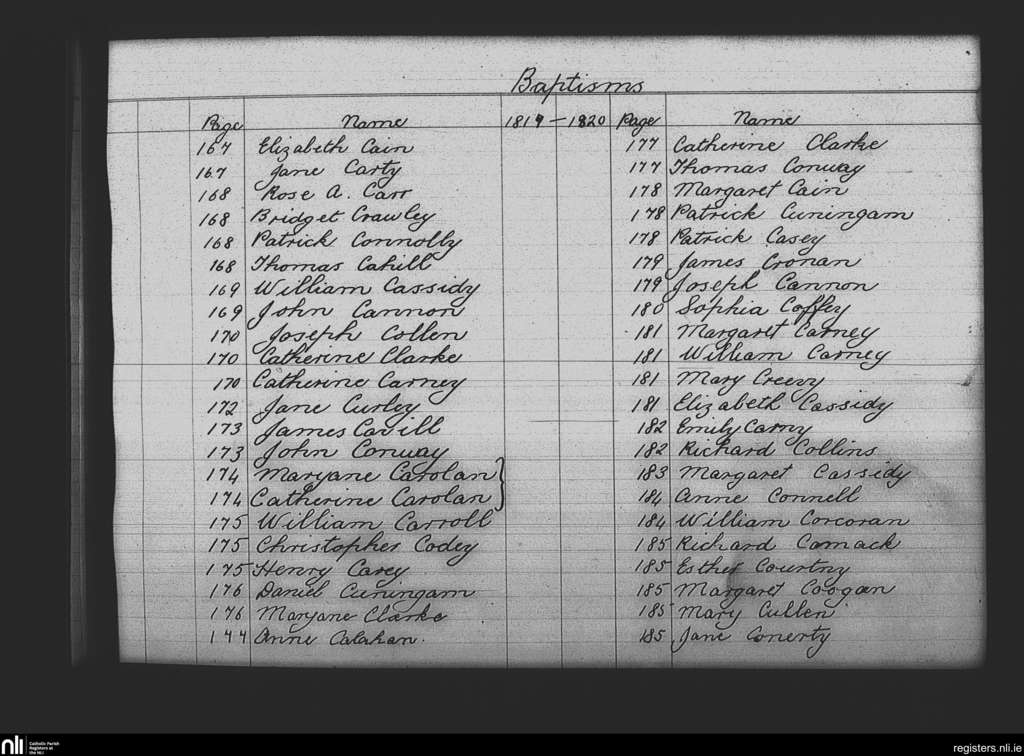 Baptisms
Page Name 1819 - 1820 Page Name
167 Elizabeth Cain 177 Catherine Clarke
167 Jane Carty 177 Thomas Conway
168 Rose A. Carr 178 Margaret Cain
168 Bridget Crawley 178 Patrick Cuningam
168 Patrick Connolly 178 Patrick Casey
168 Thomas Cahill 179 James Cronan
169 William Cassidy 179 Joseph Cannon
169 John Cannon 180 Sophia Coffey
170 Joseph Collen 181 Margaret Carney
170 Catherine Clarke 181 William Carney
170 Catherine Carney 181 Mary Creevy
172 Jane Curley 181 Elizabeth Cassidy
173 James Cavill 182 Emily Carny
173 John Conway 182 Richard Collins
174 Maryane Carolan 183 Margaret Cassidy
174 Catherine Carolan 184 Anne Connell
175 William Carroll 184 William Corcoran
175 Christopher Codey 185 Richard Comack
175 Henry Carey 185 Esther Courtny
176 Daniel Cuningam 185 Margaret Coogan
176 Maryane Clarke 185 Mary Cullen
144 Anne Calahan. 185 Jane Conerty
nli Catholic Parish
Registers at
the NLI
registers.nli.ie